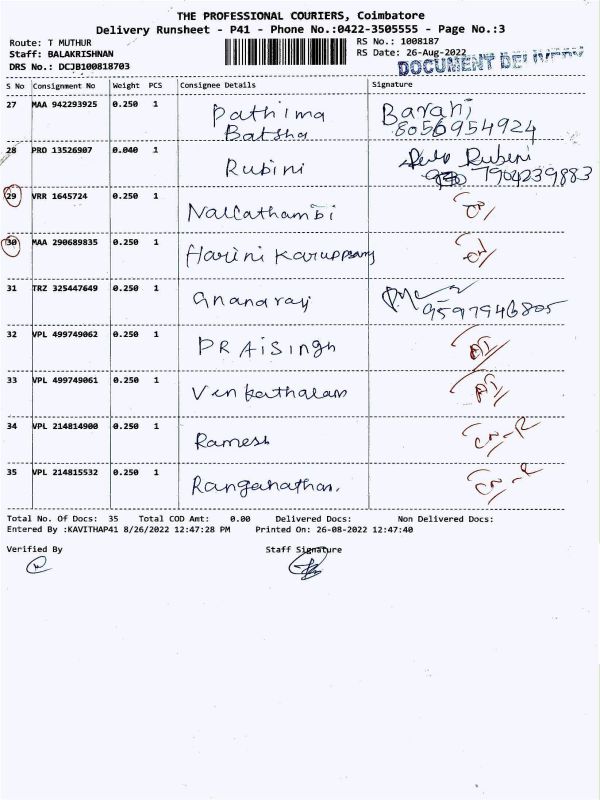 THE PROFESSIONAL COURIERS, Coimbatore
Delivery Runsheet - P41 - Phone No.:0422-3505555 - Page No.:3
Route: T MUTHUR RS No.: 1008187
Staff: BALAKRISHNAN RS Date: 26-Aug-2022
DRS No.: DCJB100818703 DOCUMENT
S No Consignment No Weight PCS Consignee Details Signature
27 MAA 942293925 0.250 1 Pathima Barani
Batsha 8056954924
28 PRO 13526907 0.040 1 Rubini Rubini
7904239883
29 VRR 1645724 0.250 1 Nallathambi
30 MAA 290689835 0.250 1 Harini Karuppsamy
31 TRZ 325447649 0.250 1 Gnanaraj 9597946805
32 VPL 499749062 0.250 1 PRAiSingh
33 VPL 499749061 0.250 1 Venkathalam
34 VPL 214814900 0.250 1 Ramesh
35 VPL 214815532 0.250 1 Ranganathan.
Total No. Of Docs: 35 Total COD Amt: 0.00 Delivered Docs: Non Delivered Docs:
Entered By :KAVITHAP41 8/26/2022 12:47:28 PM Printed On: 26-08-2022 12:47:40
Verified By Staff Signature